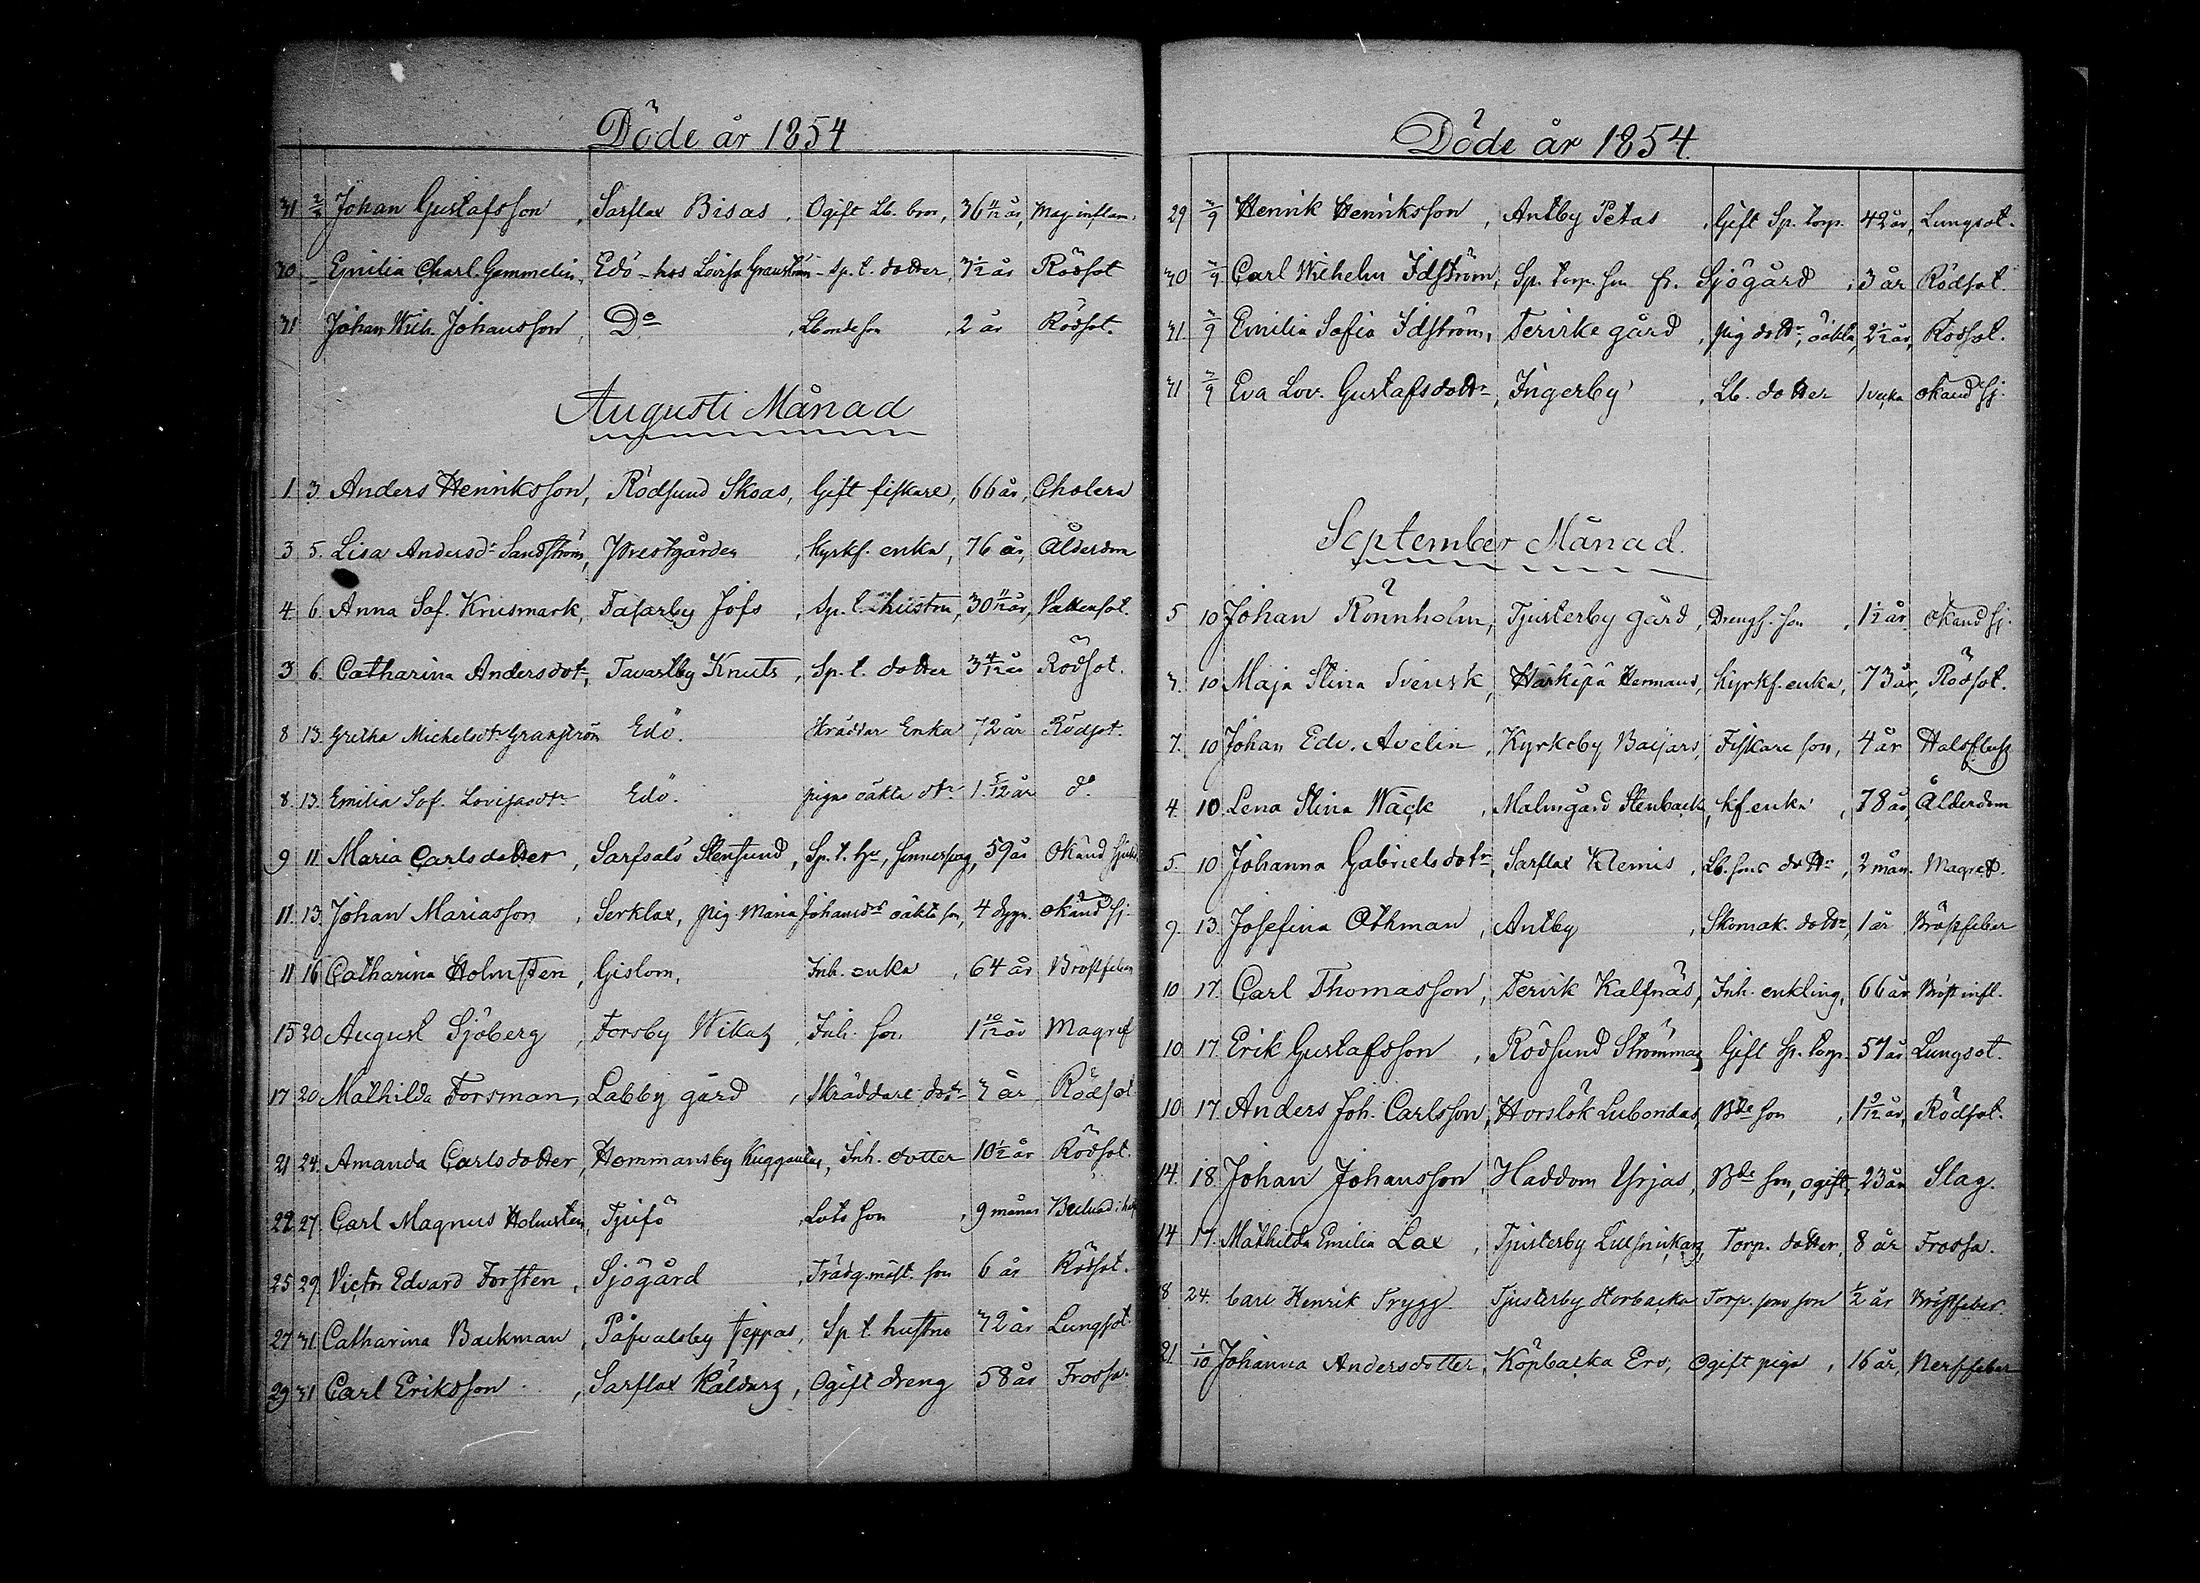 Döde år 1854
31 2/8 Johan Gustafsson, Sarflax Bisas, Ogift Lb. bror, 36 11/12 år, Mag inflam.
30 Emilia Charl. Gammelin, Edö - hos Lovisa Granström - Sp. t. dotter, 3 1/2 år Rödsot
31 Johan Wilh. Johansson, Do, Lbonde son, 2 år Rödsot.
Augusti Månad
1 3. Anders Henriksson, Rödsund Skoas, Gift fiskare, 66 år, Cholera
3 5. Lisa Andersdr Sandström, Prestgården, kyrkf. enka, 76 år, Ålderdom
4 6. Anna Sof. Krusmark, Tasarby Jofs, Sp. t. hustru, 30 11/12 år, Vattensot.
3 6. Catharina Andersdotr, Tavastby Knuts, Sp. t. dotter 3 4/12 år Rödsot.
8 13. Gretha Michelsdtr Granström Edö. Skräddar Enka 72 år Rödsot.
8. 13. Emilia Sof. Lovisasdtr Edö. pigas oäkta dtr 1. 5/12 år do.
9 11. Maria Carlsdotter, Sarfsalö Stensund, Sp. t. hu, 59 år Okänd
11. 13. Johan Mariasson, Serklax, pig. Maria Johansdrs oäkta son, 4 dygn. okänd sj.
11 16 Catharina Holmsten, Gislom, Inh. enka, 64 år Bröstfeber
15 20 August Sjöberg, Forsby Wikas, Inh. son 1 10/12 år Magref
17 20. Mathilda Forsman, Labby gård, Skräddare dotr 7 år Rödsot
21 24. Amanda Carlsdotter, Hommansby Kuggas, Inh. dotter 10 1/2 år Rödsot.
22 27. Carl Magnus Holmsten, Tjufö, Lots son, 9 månar
25 29. Victor Edvard Forsten, Sjögård, Trädg.mäst. son 6 år Rödsot.
27 31 Catharina Backman, Påfvalsby Jeppas, Sp t. hustru 72 år Lungsot.
29 31 Carl Eriksson, Sarflax Käldars, Ogift dreng 58 år Frossa.
Döde år 1854.
29 3/9 Henrik Henriksson, Antby Petas, Gift Sp. torp. 42 år, Lungsot.
30 3/9 Carl Wilhelm Idström, Sp. torp. son fr. Sjögård, 3 år Rödsot.
31. 3/9 Emilia Sofia Idström, Tervike gård, pig dottr, oäkta, 2 1/2 år, Rödsot.
31 3/9 Eva Lov. Gustafsdottr, Ingerby, Lb. dotter 1 vecka okänd sj.
September Månad.
5 10 Johan Rönnholm, Tjusterby gård, Drengs. son, 1 1/2 år okänd sj.
3. 10 Maja Stina Svensk, Härkäpä Hermans, kyrkf. enka, 73 år, Rödsot.
7. 10 Johan Edv. Avelin, Kyrkoby Baijars, Fiskare son, 4 år Halsfluss
4. 10. Lena Stina Wäck, Malmgård Stenback, kf. enka, 78 år, Ålderdom
5. 10 Johanna Gabrielsdotr, Sarflax Klemis, Lb. sons dottr, 2 mån. Magref.
9. 13. Josefina Othman, Antby, Skomak. dottr, 1 år, Bröstfeber
10 17. Carl Thomasson, Tervik Kalfnäs, Inh. enkling, 66 år Bröst infl.
10 17. Erik Gustafsson, Rödsund Strömmas, Gift Sp. torp. 57 år Lungsot.
10 17. Anders Joh. Carlsson, Horslök Lubondas, Bde son, 1 9/12 år, Rödsot.
14. 18. Johan Johansson, Haddom Yrjas, Bde son, ogift, 23 år Slag.
14 17. Mathilda Emilia Lax, Tjusterby, Torp. dotter, 8 år Frossa.
18 24. Carl Henrik Trygg. Tjusterby Storbacka Torp. sons son 1/2 år Bröstfeber
21 1/10 Johanna Andersdotter, Köpbacka Ers, Ogift piga, 16 år, Nervfeber